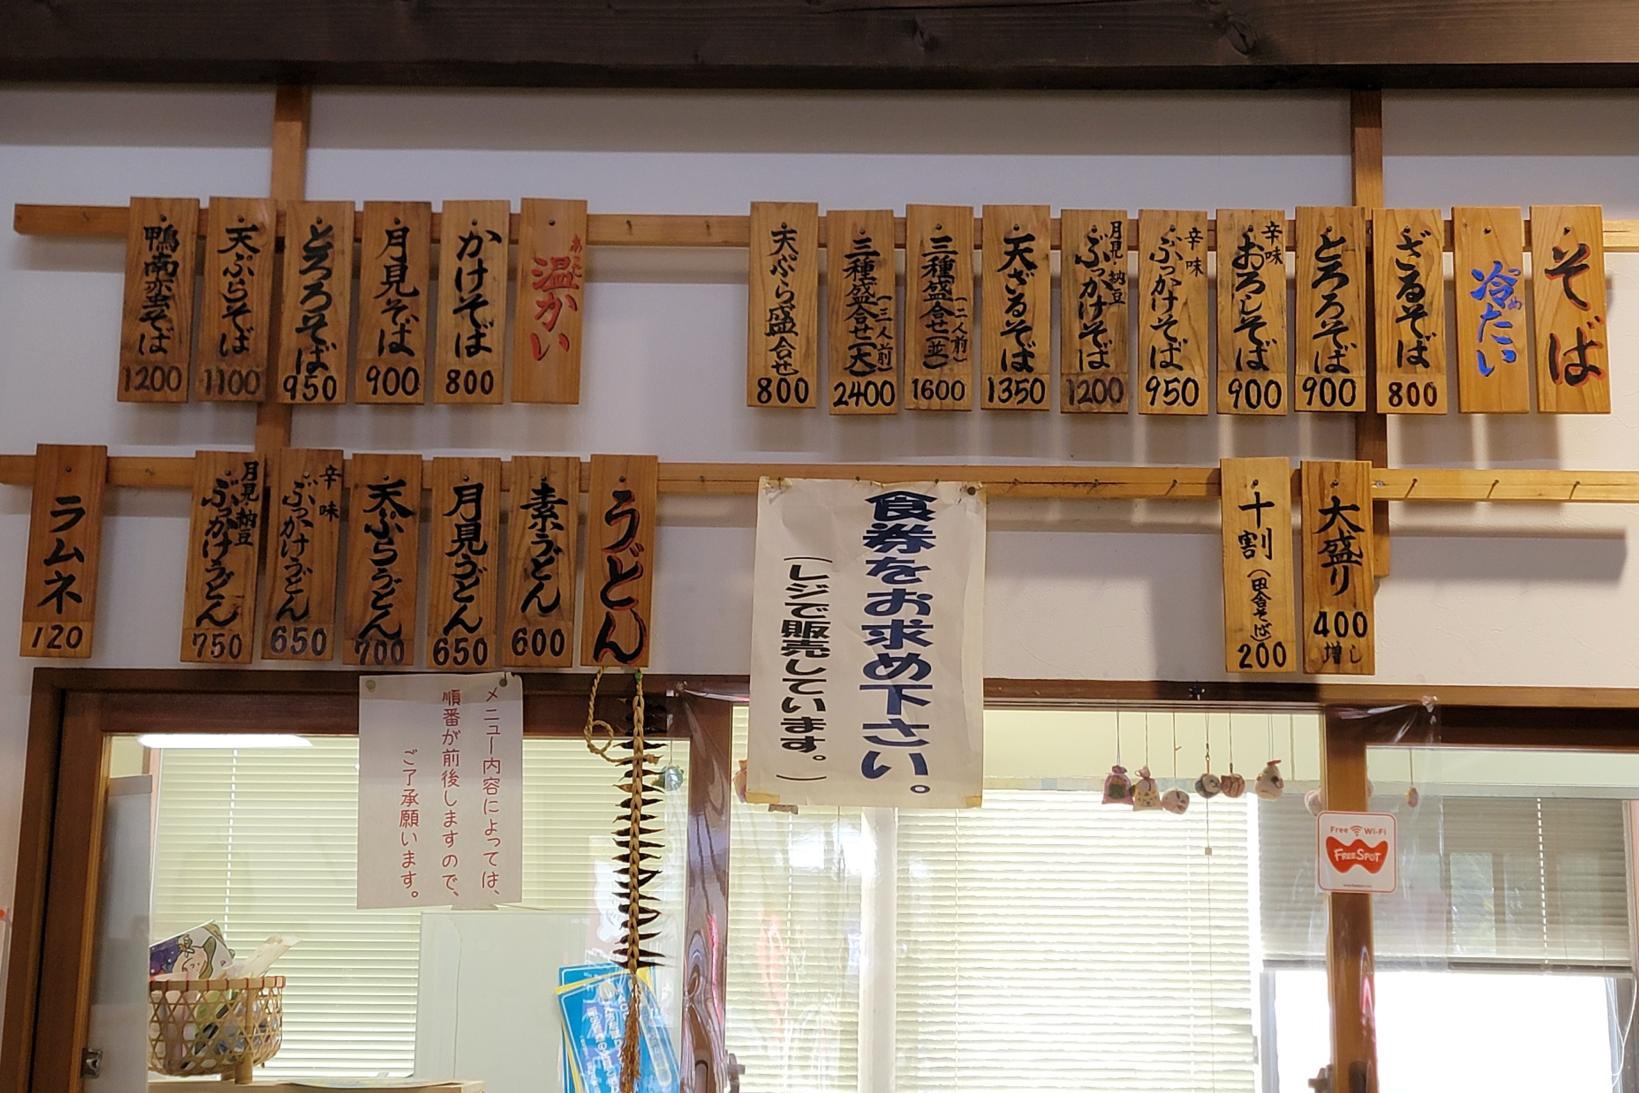 そば
冷たい
つめ
ざるそば
800
とろろそば
900
辛味
おろしそば
900
辛味
ぶっかけそば
950
月見・納豆
ぶっかけそば
1200
天ざるそば
1350
三種盛合せ(並)
(二人前)
1600
三種盛合せ(大)
(三人前)
2400
天ぷら盛合せ
800
温かい
あたた
かけそば
800
月見そば
900
とろろそば
950
天ぷらそば
1100
鴨南蛮そば
1200
大盛り
400
増し
十割(田舎そば)
200
食券をお求め下さい。
(レジで販売しています。)
うどん
素うどん
600
月見うどん
650
天ぷらうどん
700
辛味
ぶっかけうどん
650
月見納豆
ぶっかけうどん
750
ラムネ
120
メニュー内容によっては、
順番が前後しますので、
ご了承願います。
Free Wi-Fi
FREESPOT